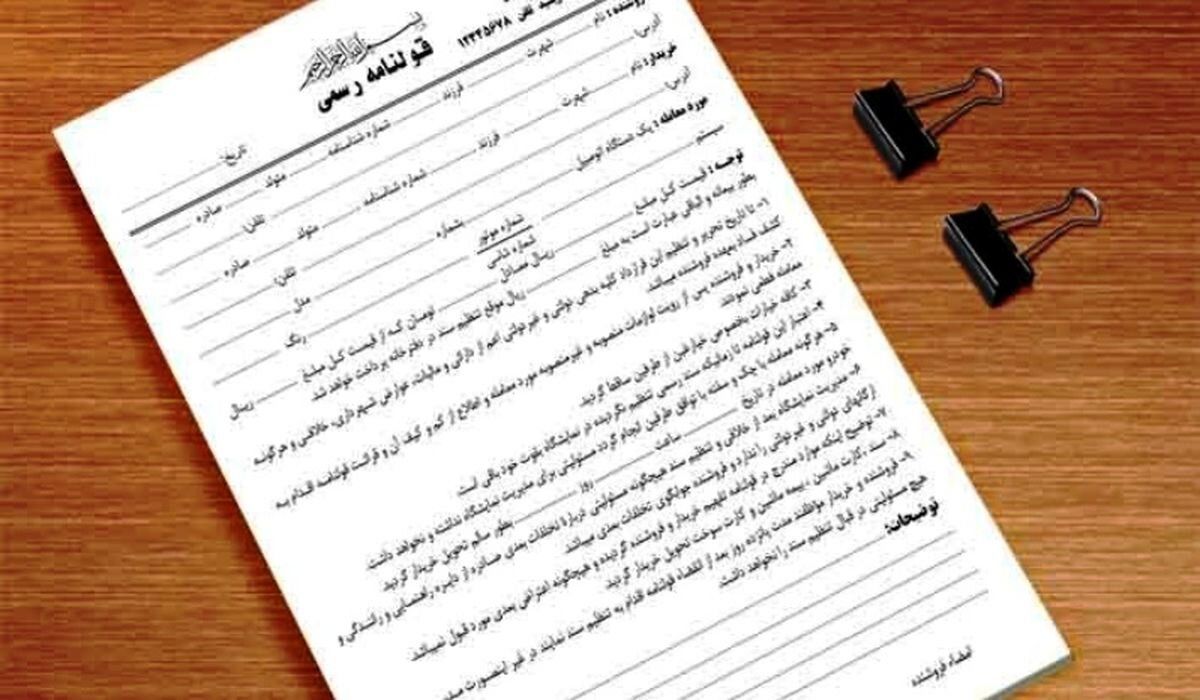 بسم الله الرحمن الرحیم
قولنامه رسمی
تلفن ۱۲۳۴۵۶۷۸
تاریخ:
فروشنده: نام شهرت فرزند شماره شناسنامه متولد صادره
آدرس: تلفن:
خریدار: نام شهرت فرزند شماره شناسنامه متولد صادره
آدرس: تلفن:
مورد معامله: یک دستگاه اتومبیل شماره مدل
سیستم شماره موتور
شماره شاسی رنگ
توجه: قیمت کل مبلغ ریال معادل تومان که از قیمت کل مبلغ ریال
بطور بیعانه و الباقی عبارت است به مبلغ ریال موقع تنظیم سند در دفترخانه پرداخت خواهد شد.
۱- تا تاریخ تحریر و تنظیم این قرارداد کلیه بدهی دولتی و غیردولتی اعم از دارائی و مالیات، عوارض شهرداری، خلافی و هرگونه
کشف فساد بعهده فروشنده میباشد.
۲- خریدار و فروشنده پس از رویت لوازمات منصوبه و غیرمنصوبه مورد معامله و اطلاع از کم و کیف آن و قرائت قولنامه اقدام به
معامله قطعی نمودند.
۳- کافه خیارات بخصوص خیارغبن از طرفین ساقط گردید.
۴- اعتبار این قولنامه تا زمانیکه سند رسمی تنظیم نگردیده در نمایشگاه بقوت خود باقی است.
۵- هرگونه معامله با چک و سفته با توافق طرفین انجام گردد مسئولیتی برای مدیریت نمایشگاه نداشته و نخواهد داشت.
خودرو مورد معامله در تاریخ ساعت روز بطور سالم تحویل خریدار گردید.
۶- مدیریت نمایشگاه بعد از خلافی و تنظیم سند هیچگونه مسئولیتی درباره تخلفات بعدی صادره از دایره راهنمایی و رانندگی و
ارگانهای دولتی و غیردولتی را ندارد و فروشنده جوابگوی تخلفات بعدی میباشد.
۷- توضیح اینکه موارد مندرج در قولنامه تفهیم خریدار و فروشنده گردیده و هیچگونه اعتراض بعدی مورد قبول نمیباشد.
۸- سند، کارت ماشین، بیمه ماشین و کارت سوخت تحویل خریدار گردید.
۹- فروشنده و خریدار موظفند مدت پانزده روز بعد از انقضاء قولنامه اقدام به تنظیم سند نمایند در غیر اینصورت
هیچ مسئولیتی در قبال تنظیم سند را نخواهد داشت.
توضیحات:
امضاء فروشنده